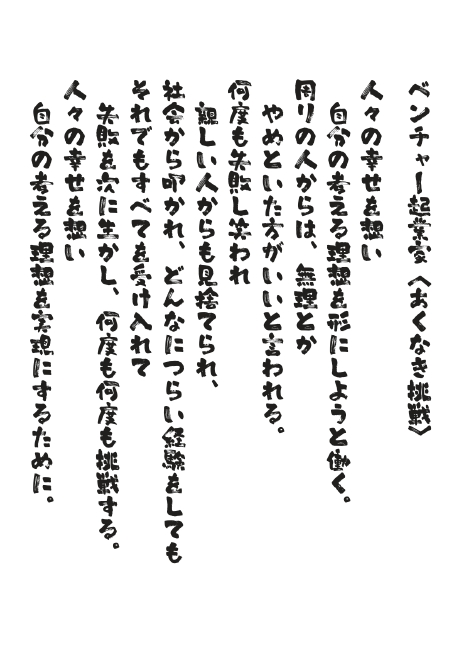 ベンチャー起業家〈あくなき挑戦〉
人々の幸せを想い
自分の考える理想を形にしようと働く。
周りの人からは、無理とか
やめといた方がいいと言われる。
何度も失敗し笑われ
親しい人からも見捨てられ、
社会から叩かれ、どんなにつらい経験をしても
それでもすべてを受け入れて
失敗を次に生かし、何度も何度も挑戦する。
人々の幸せを想い
自分の考える理想を実現にするために。